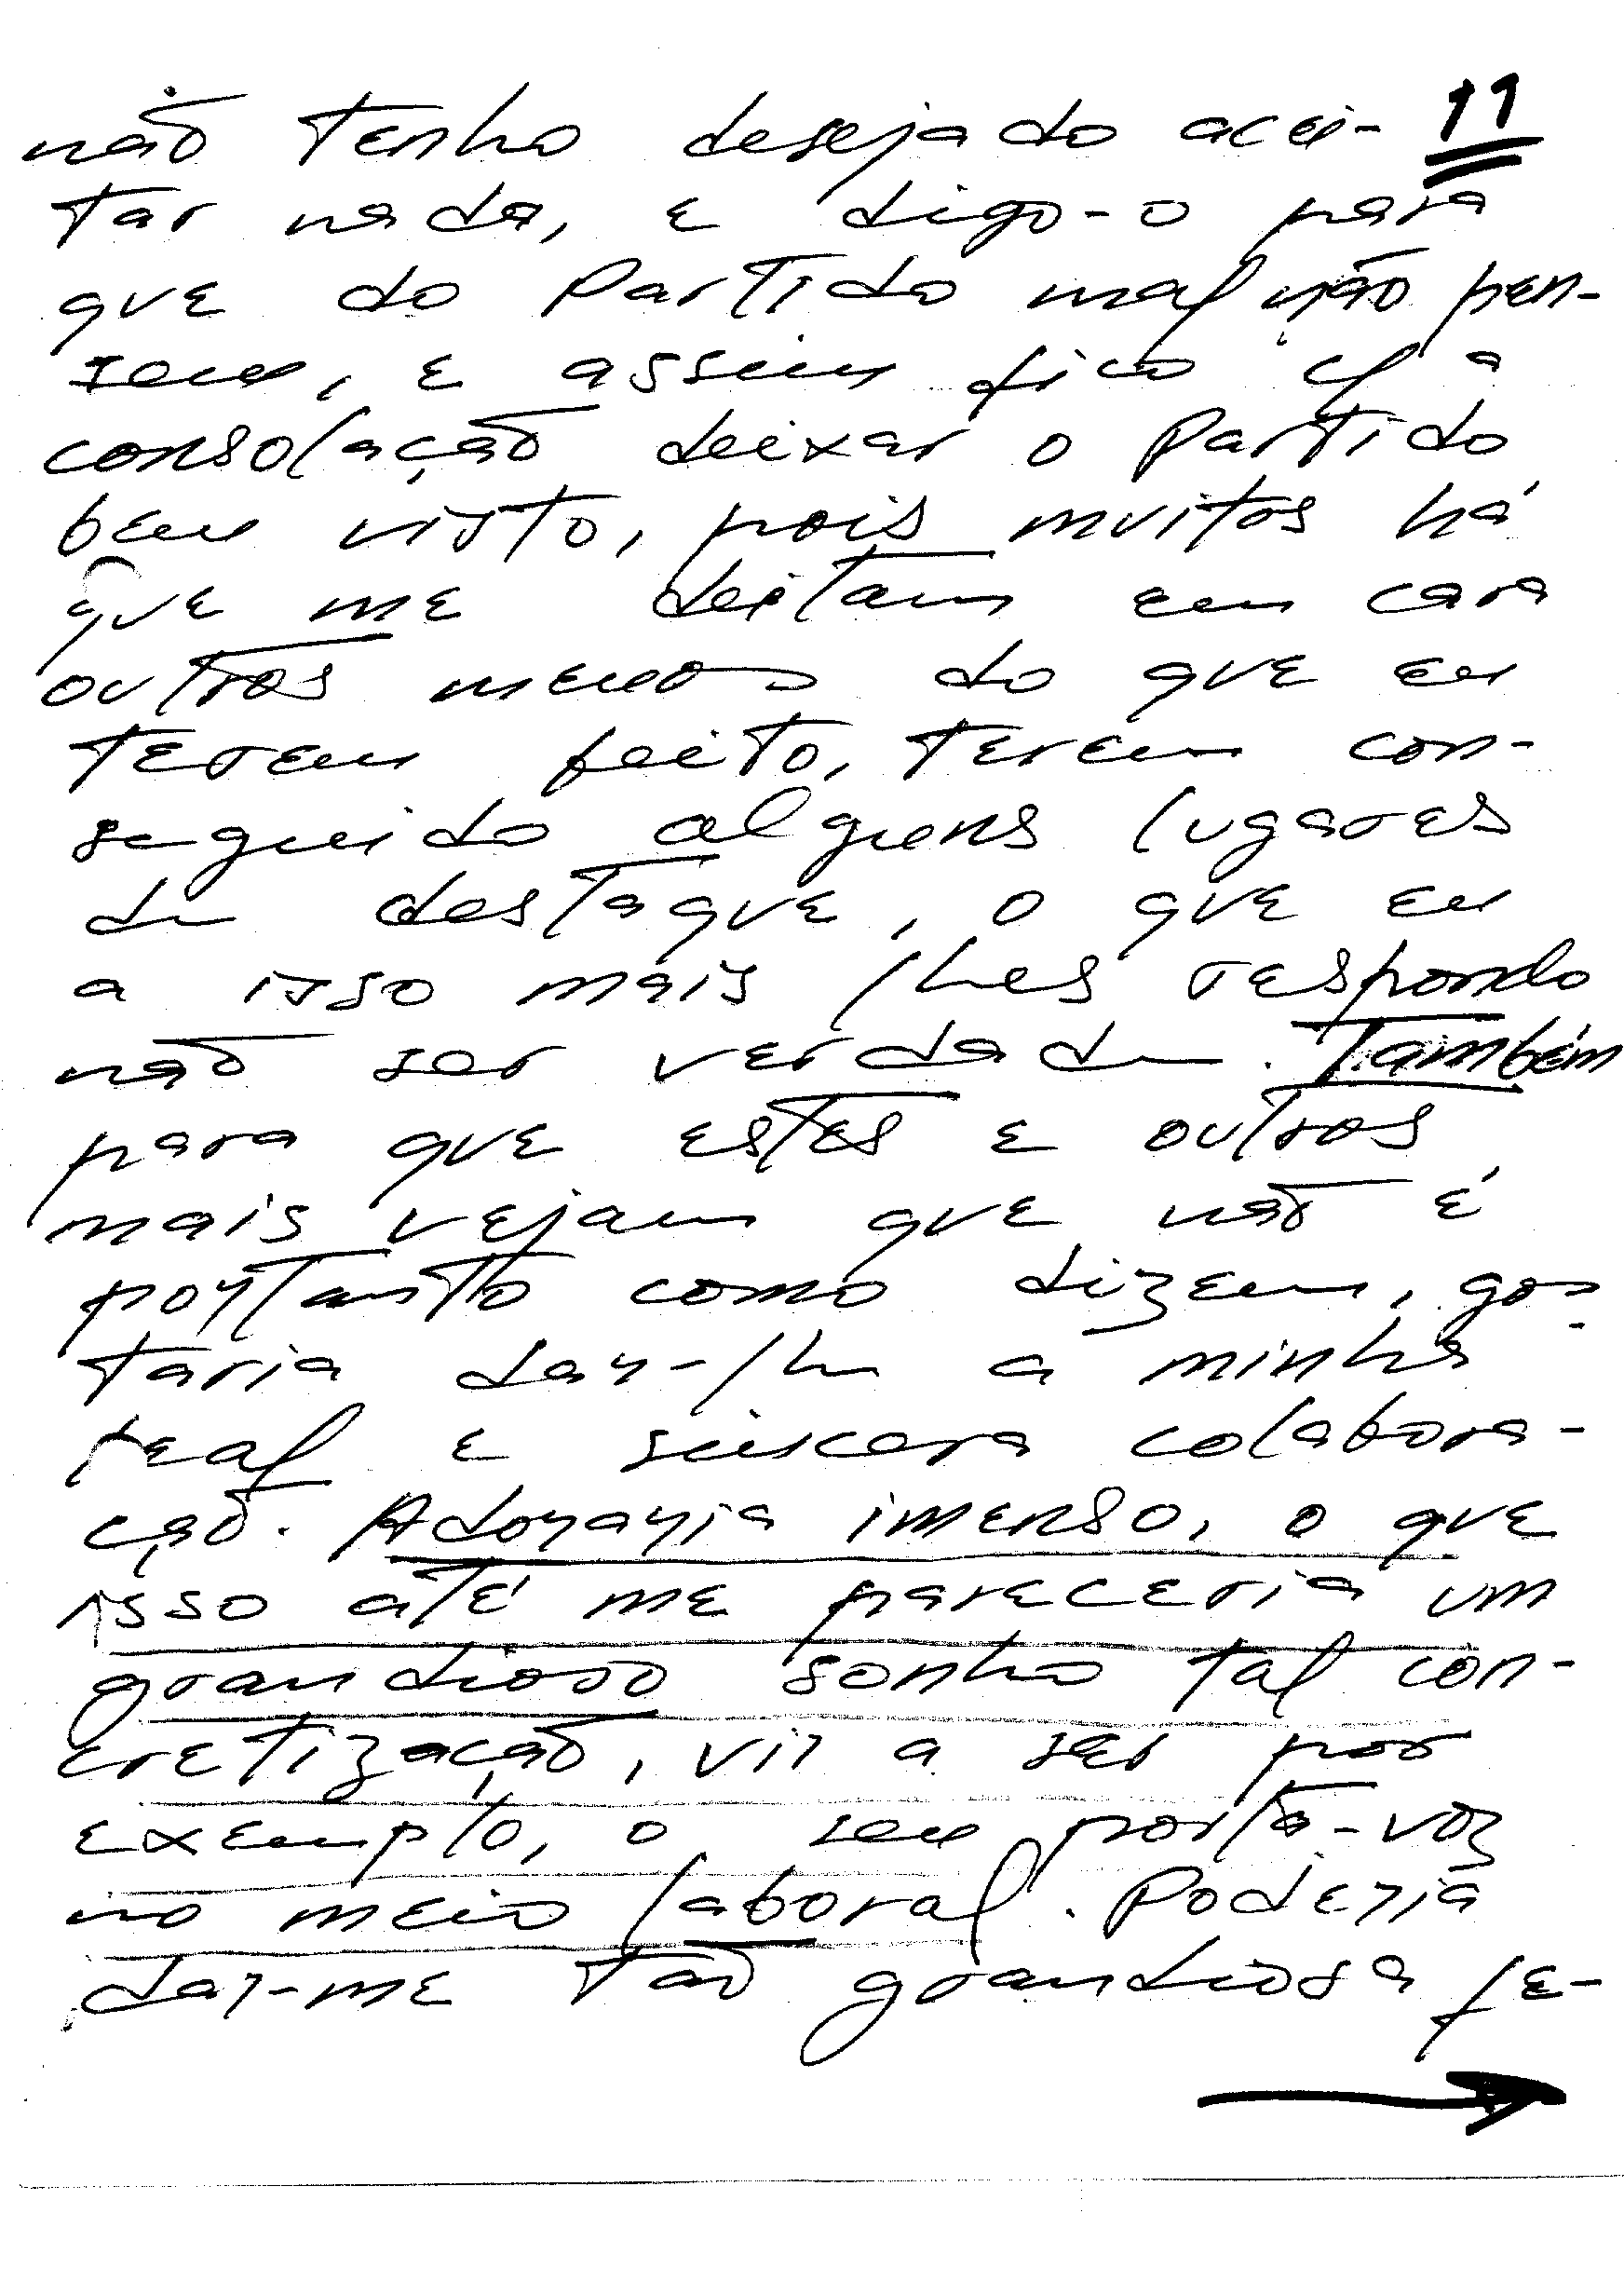 não tenho desejado acei- 11
tar nada, e digo-o para
que do Partido mal não pen-
sem, e assim fico c/ a
consolação deixar o Partido
bem visto, pois muitos há
que me deitam em cara
outros menos do que eu
terem feito, terem con-
seguido alguns lugares
de destaque, o que eu
a isso mais lhes respondo
não ser verdade. Também
para que estes e outros
mais vejam que não é
portanto como dizem, gos-
taria dar-lhe a minha
real e sincera colabora-
ção. Adoraria imenso, o que
isso até me pareceria um
grandioso sonho tal con-
cretização, vir a ser por
exemplo, o seu porta-voz
no meio laboral. Poderia
dar-me tão grandiosa fe-